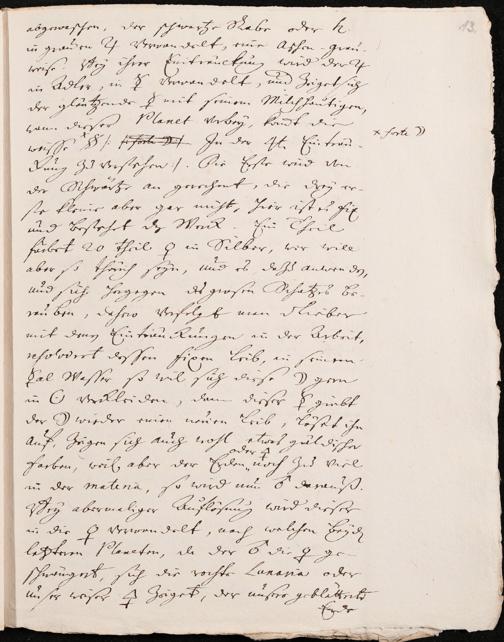 13.
abgewaschen, der schwartze Rabe oder ♄
in grauen ♃ verwandelt, eine Aschen grau-
weise. Bey ihrer Eintränckung wird der ♃
in Adler, in ☿ verwandelt, und zeiget sich
der gläntzende ☿ mit seinem Milchhäutigen,
wann dieser Planet vorbey, kömt die
weisse In der 4t. Einträn-
x forte ☽
ckung zu verstehen /. Die Erste wird von
der Schwärtze an gerechnet, die drey er-
ste kleine aber gar nicht, hier ist es fix
und bestehet das Werck. Ein Theil
färbet 20 theil ☿ in Silber, wer will
aber so thörich seyn, und es dahin anwenden,
und sich hergegen des grosen Schatzes be-
rauben, dahero verfolgt man lieber
mit denen Eintränckungen in der Arbeit,
resolviret dessen fixen Leib, in seinem
☿al Wasser so wil sich diese ☽ gern
in ☉ verkleiden, dann dieser ☿ giebt
der ☽ wieder einen neuen Leib, löset ihn
auf, zeigen sich auch wohl etwas güldische
farben, weil aber der Erden oder noch zu viel
in der materia, so wird nun ♂ darauß.
Bey abermaliger Auflösung wird dieser
in die ♀ verwandelt, nach welchen beyden
letztern Planeten, da der ♂ die ♀ ge-
schwängert, sich die rechte Lunaria oder
unser weiser zeiget, der unsere geblätterte
Erde